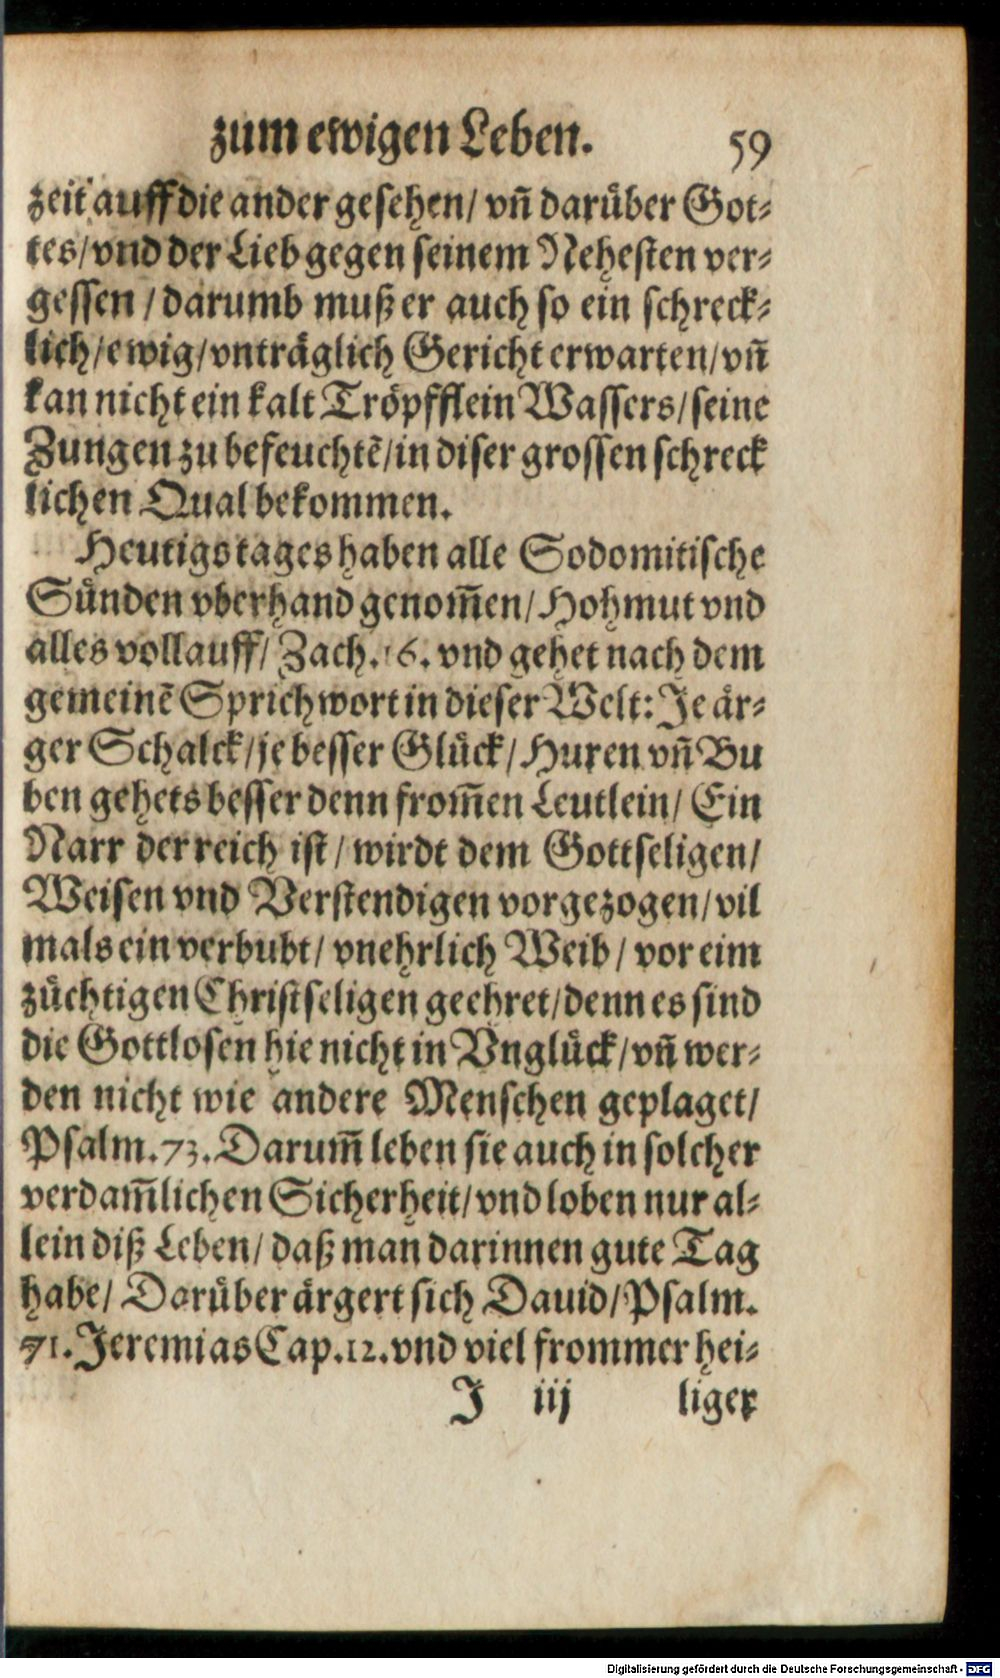 zum ewigen Leben. 59
zeit auff die ander gesehen/ vñ darüber Got-
tes/ vnd der Lieb gegen seinem Nehesten ver-
gessen / darumb muß er auch so ein schreck-
lich/ ewig/ vnträglich Gericht erwarten/ vñ
kan nicht ein kalt Tröpfflein Wassers/ seine
Zungen zu befeuchtẽ/ in diser grossen schreck
lichen Qual bekommen.
Heutigs tages haben alle Sodomitische
Sünden vberhand genom̃en/ Hohmut vnd
alles vollauff/ Zach. 16. vnd gehet nach dem
gemeinẽ Sprichwort in dieser Welt: Je är-
ger Schalck/ je besser Glück/ Huren vñ Bu
ben gehets besser denn from̃en Leutlein/ Ein
Narr der reich ist/ wirdt dem Gottseligen/
Weisen vnd Verstendigen vorgezogen/ vil
mals ein verbubt/ vnehrlich Weib/ vor eim
züchtigen Christseligen geehret/ denn es sind
die Gottlosen hie nicht in Vnglück/ vñ wer-
den nicht wie andere Menschen geplaget/
Psalm. 73. Darum̃ leben sie auch in solcher
verdam̃lichen Sicherheit/ vnd loben nur al-
lein diß Leben/ daß man darinnen gute Tag
habe/ Darüber ärgert sich Dauid/ Psalm.
71. Jeremias Cap. 12. vnd viel frommer hei-
J iij liger
Digitalisierung gefördert durch die Deutsche Forschungsgemeinschaft - DFG